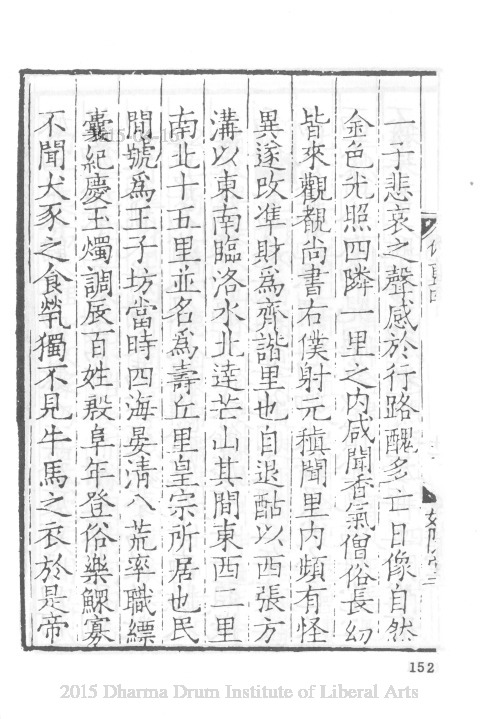 一子悲哀之聲感於行路醜多亡日像自然
金色光照四隣一里之內咸聞香氣僧俗長幼
皆來觀覩尚書右僕射元稹聞里內頻有怪
異遂改凖財爲齊諧里也自退酤以西張方
溝以東南臨洛水北達芒山其間東西二里
南北十五里並名爲壽丘里皇宗所居也民
間號爲王子坊當時四海晏清八荒率職縹
囊紀慶玉燭調辰百姓殷阜年登俗樂鰥寡
不聞犬豕之食煢獨不見牛馬之衣於是帝
152
2015 Dharma Drum Institute of Liberal Arts